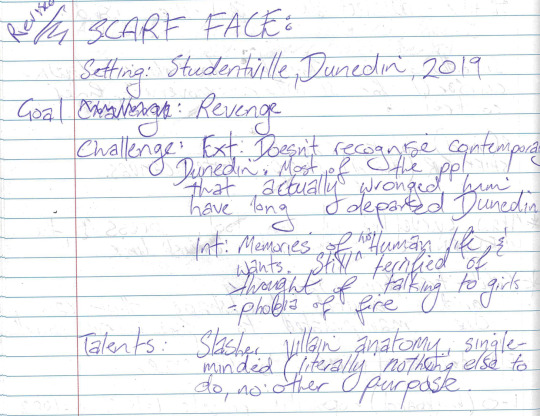 Revised
SCARF FACE:
Setting: Studentville, Dunedin, 2019
Goal: Revenge
Challenge: Ext: Doesn't recognise contempora
Dunedin. Most of the ppl
that actually wronged him
have long departed Dunedin
Int: Memories of his Human life, &
wants. Still terrified of
thought of talking to girls
- phobia of fire
Talents: Slasher villain anatomy, single-
minded (literally nothing else to
do, no other purpose.